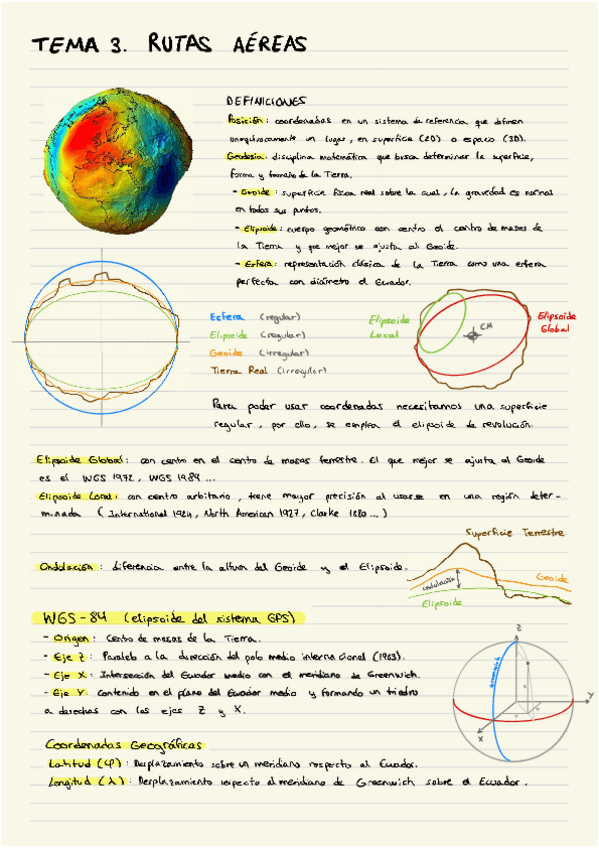 TEMA 3. RUTAS AÉREAS
DEFINICIONES
Posición: coordenadas en un sistema de referencia que definen
unequívocamente un lugar, en superficie (2D) o espacio (3D).
Geodesia: disciplina matemática que busca determinar la superficie,
forma y tamaño de la Tierra.
- Geoide: superficie física real sobre la cual, la gravedad es normal
en todos sus puntos.
- Elipsoide: cuerpo geométrico con centro el centro de masas de
la Tierra y que mejor se ajusta al Geoide.
- Esfera: representación clásica de la Tierra como una esfera
perfecta con diámetro el Ecuador.
Esfera (regular)
Elipsoide (regular)
Geoide (irregular)
Tierra Real (irregular)
Elipsoide
Local
CM
Elipsoide
Global
Para poder usar coordenadas necesitamos una superficie
regular, por ello, se emplea el elipsoide de revolución.
Elipsoide Global: con centro en el centro de masas terrestre. El que mejor se ajusta al Geoide
es el WGS 1972, WGS 1984...
Elipsoide Local: con centro arbitrario, tiene mayor precisión al usarse en una región deter-
minada (International 1924, North American 1927, Clarke 1880...)
Superficie Terrestre
Ondulación: diferencia entre la altura del Geoide y el Elipsoide.
ondulación
Geoide
Elipsoide
WGS-84 (elipsoide del sistema GPS)
- Origen: Centro de masas de la Tierra.
- Eje Z: Paralelo a la dirección del polo medio internacional (1903).
- Eje X: Intersección del Ecuador medio con el meridiano de Greenwich.
- Eje Y: contenido en el plano del Ecuador medio y formando un triedro
a derechas con los ejes Z y X.
Z
Greenwich
Y
X
Coordenadas Geográficas
Latitud (φ): Desplazamiento sobre un meridiano respecto al Ecuador.
Longitud (λ): Desplazamiento respecto al meridiano de Greenwich sobre el Ecuador.